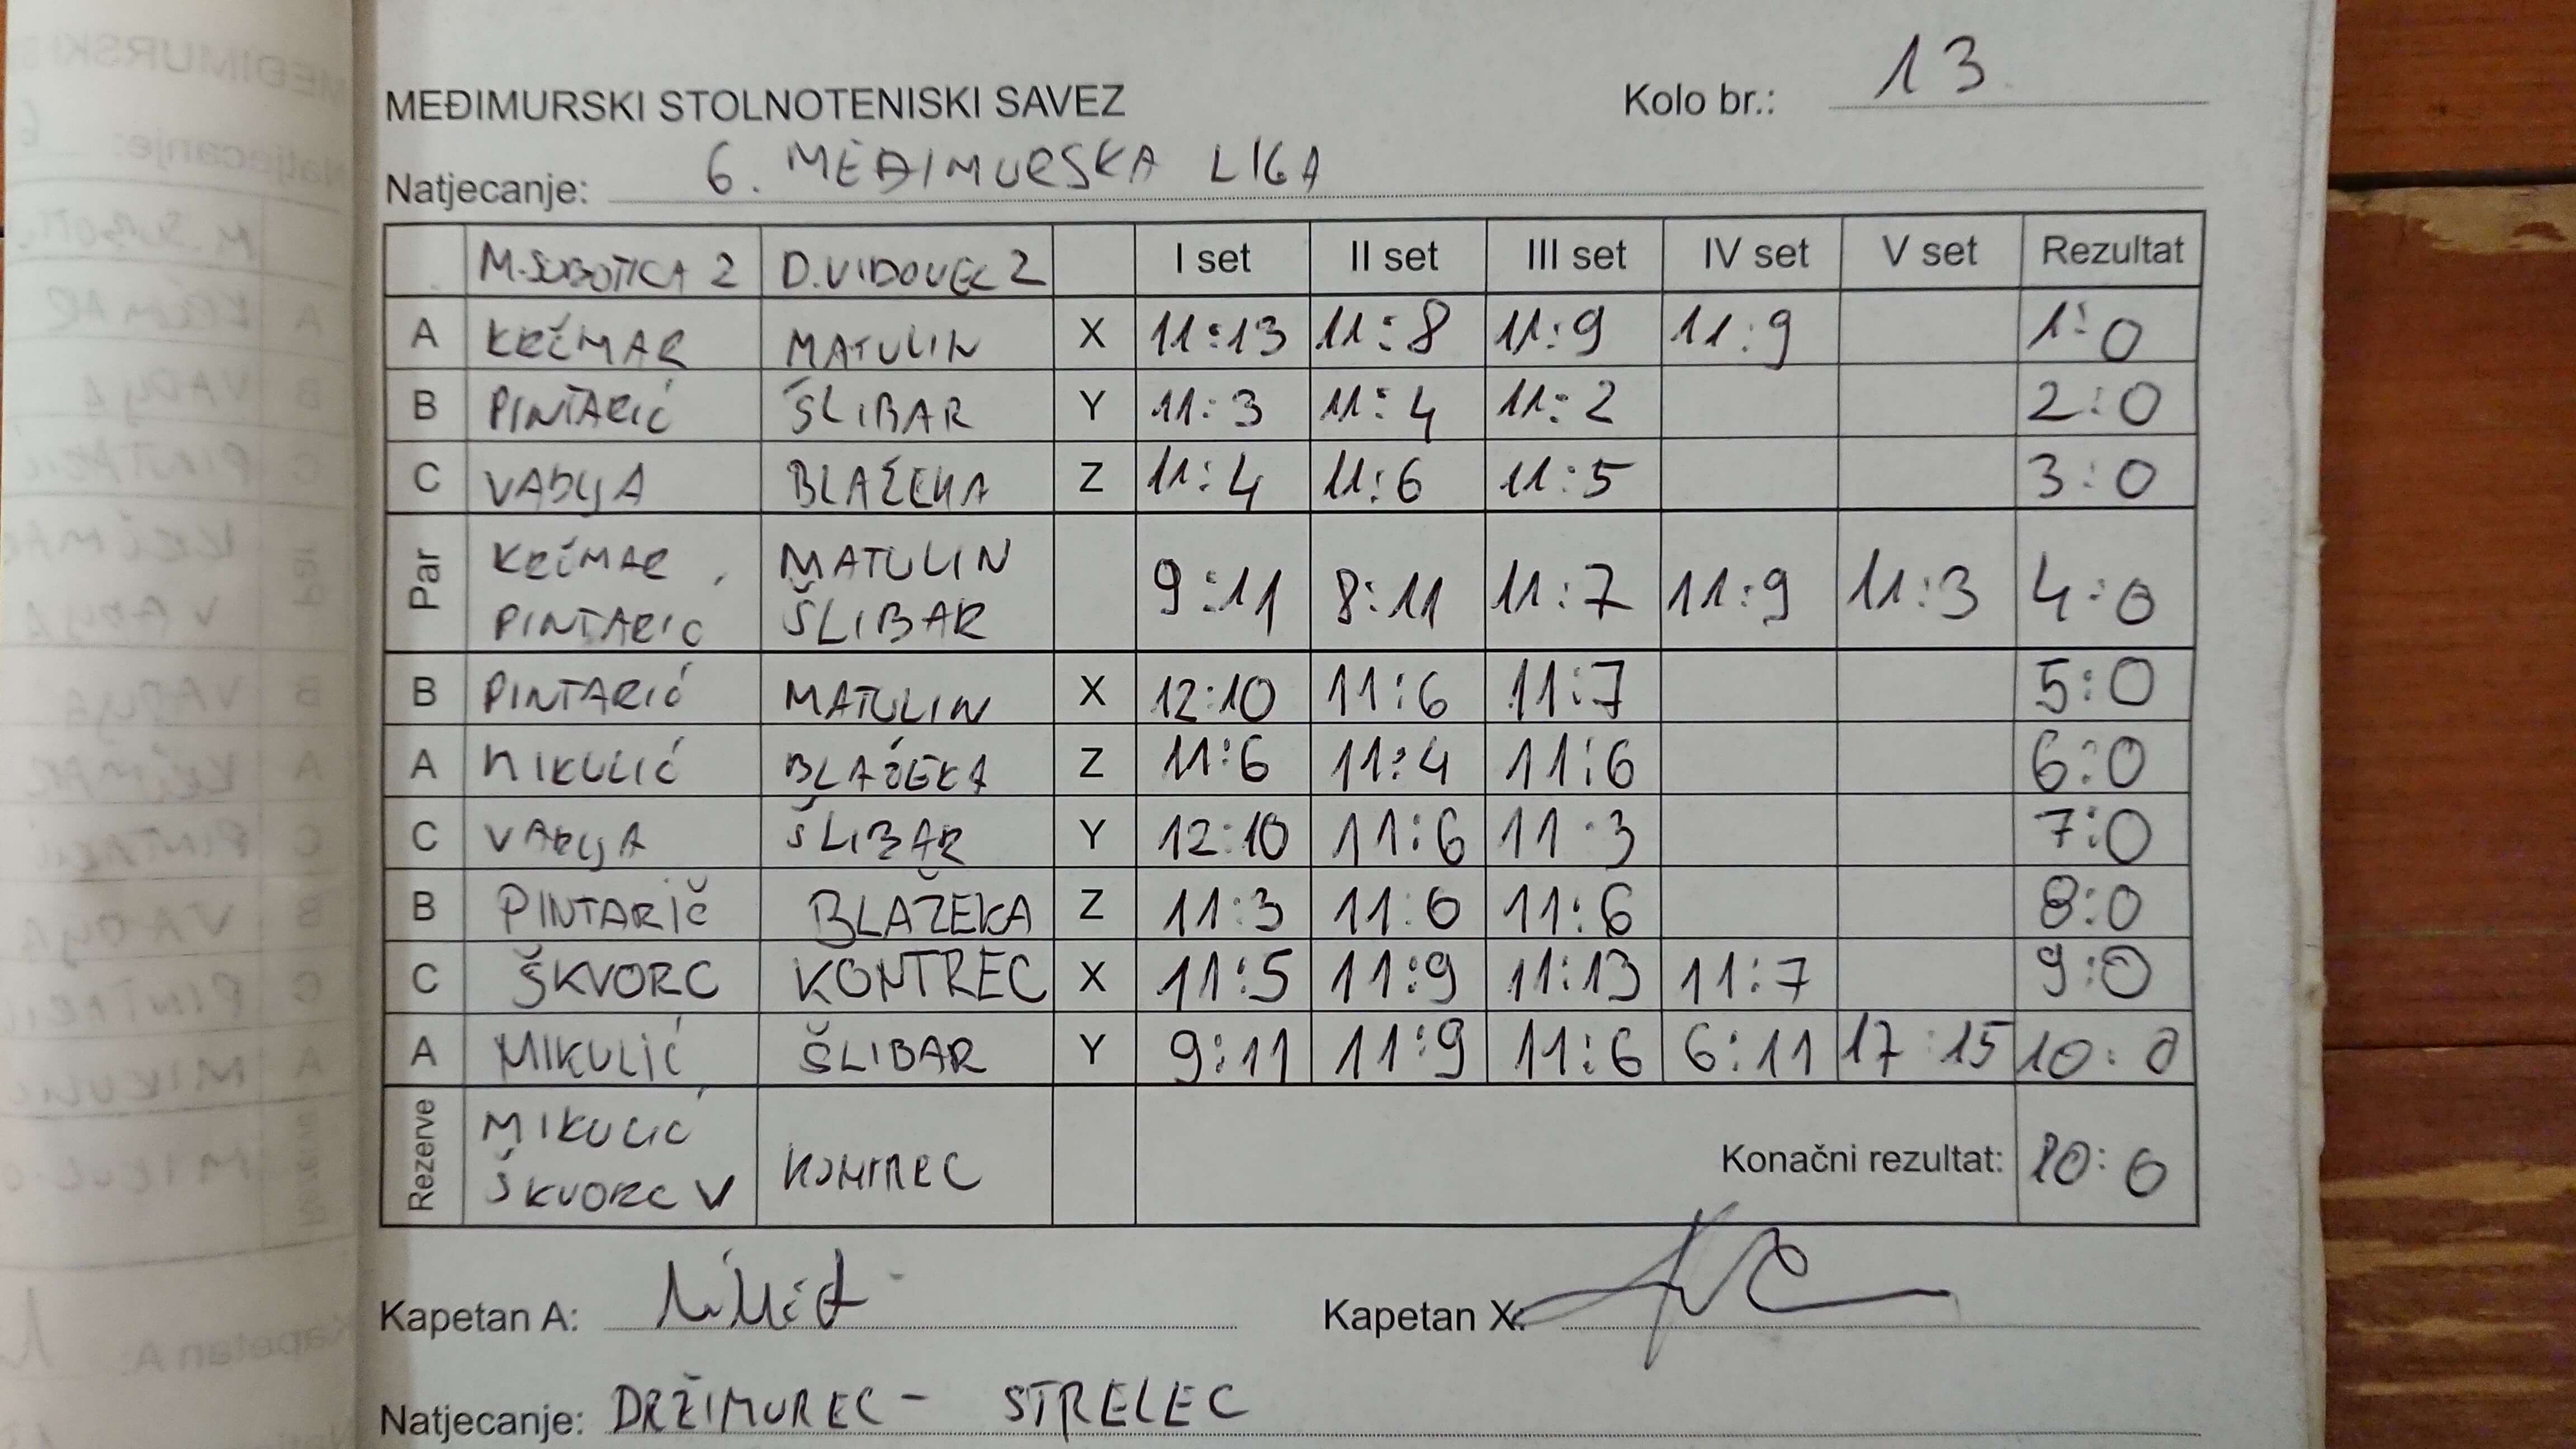 MEĐIMURSKI STOLNOTENISKI SAVEZ Kolo br.: 13
Natjecanje: 6. MEĐIMURSKA LIGA
M.SUBOTICA 2 D.VIDOVEC 2 I set II set III set IV set V set Rezultat
A KRČMAR MATULIN X 11:13 11:8 11:9 11:9 1:0
B PINTARIĆ ŠLIBAR Y 11:3 11:4 11:2 2:0
C VADLJA BLAŽEKA Z 11:4 11:6 11:5 3:0
Par KRČMAR, MATULIN 9:11 8:11 11:7 11:9 11:3 4:0
PINTARIĆ ŠLIBAR
B PINTARIĆ MATULIN X 12:10 11:6 11:7 5:0
A MIKULIĆ BLAŽEKA Z 11:6 11:4 11:6 6:0
C VADLJA ŠLIBAR Y 12:10 11:6 11:3 7:0
B PINTARIČ BLAŽEKA Z 11:3 11:6 11:6 8:0
C ŠKVORC KONTREC X 11:5 11:9 11:13 11:7 9:0
A MIKULIĆ ŠLIBAR Y 9:11 11:9 11:6 6:11 17:15 10:0
Rezerve MIKULIĆ KONTREC Konačni rezultat: 10:0
ŠKVORC V
Kapetan A: Kapetan X:
Natjecanje: DRŽIMUREC - STRELEC